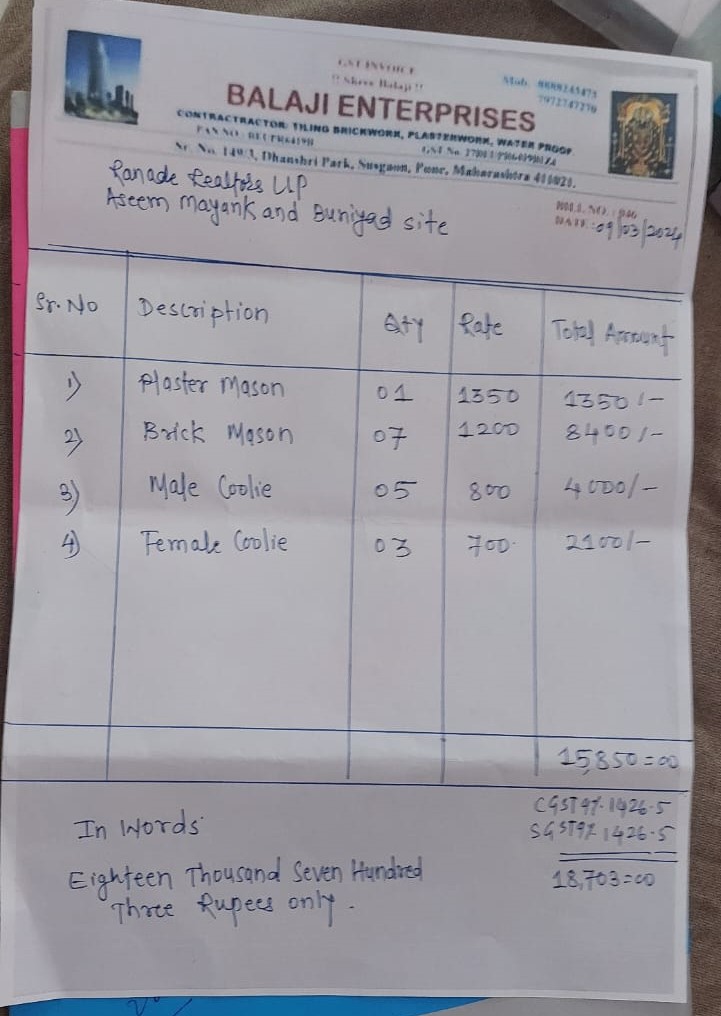 GST INVOICE
!! Shree Balaji !!
Mob. 9888245473
7972747270
BALAJI ENTERPRISES
CONTRACTRACTOR: TILING BRICKWORK, PLASTERWORK, WATER PROOF
PAN NO:
GST No.
Sr. No. 149/3, Dhanshri Park, Susgaon, Pune, Maharashtra 411021.
Ranade Realtors LLP
Aseem Mayank and Buniyad site
BILL NO. : 046
DATE : 09/03/2024
Sr. No Description Qty Rate Total Amount
1) Plaster Mason 01 1350 1350/-
2) Brick Mason 07 1200 8400/-
3) Male Coolie 05 800 4000/-
4) Female Coolie 03 700 2100/-
15,850=00
CGST 9% 1426.5
In Words SGST 9% 1426.5
Eighteen Thousand Seven Hundred 18,703=00
Three Rupees only.